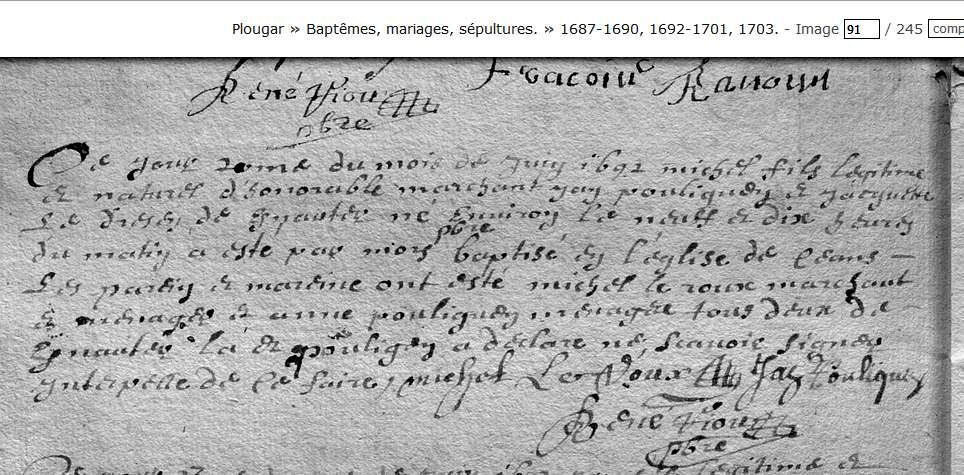 Plougar » Baptêmes, mariages, sépultures. » 1687-1690, 1692-1701, 1703. - Image 91 / 245 comp
René
pbre
Ce jour du mois de Juin 1692 michel fils legitime
et naturel d'honorable marchant yan pouliquen et Jacquette
né Environ le neuff et dix heures
du matin a este par moy pbre baptisé en l'églisse de Ceans
Les parein et mareine ont esté michel le roux marchant
et menager et anne pouliquen menagere tous deux de
la et pouliquen a déclaré ne scavoir signer
ynterpelle de ce faire, michel Le Roux Jan Pouliquen
René
pbre